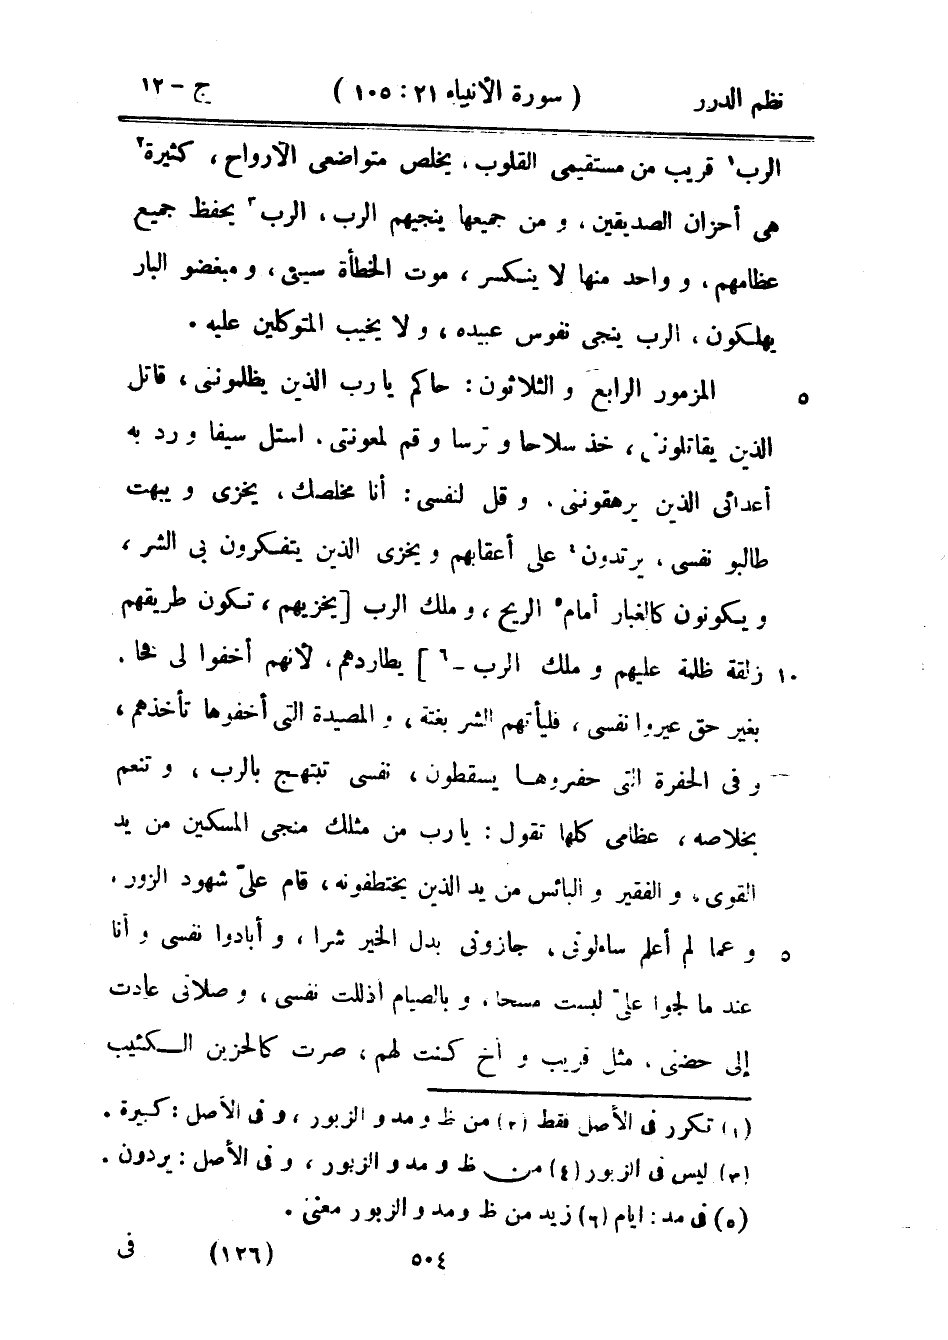 نظم الدرر ( سورة الأنبياء ٢١ : ١٠٥ ) ج - ١٢
الرب١ قريب من مستقيمى القلوب، يخلص متواضعى الأرواح، كثيرة٢
هى أحزان الصديقين، و من جميعها ينجيهم الرب، الرب٣ يحفظ جميع
عظامهم، و واحد منها لا ينكسر، موت الخطأة سيئ، و مبغضو البار
يهلكون، الرب ينجى نفوس عبيده، و لا يخيب المتوكلين عليه.
المزمور الرابع و الثلاثون: حاكم يا رب الذين يظلموننى، قاتل ٥
الذين يقاتلونى، خذ سلاحا و ترسا و قم لمعونتى. استل سيفا و رد به
أعدائى الذين يرهقوننى. و قل لنفسى: أنا مخلصك، يخزى و يبهت
طالبو نفسى، يرتدون٤ على أعقابهم و يخزى الذين يتفكرون بى الشر،
و يكونون كالغبار أمام٥ الريح، و ملك الرب [يخزيهم، تكون طريقهم
زلقة ظلمة عليهم و ملك الرب -٦ ] يطاردهم، لأنهم أخفوا لى فخا. ١٠
بغير حق عيروا نفسى، فليأتهم الشر بغتة، و المصيدة التى أخفوها تأخذهم،
و فى الحفرة التى حفروها يسقطون، نفسى تبتهج بالرب، و تنعم
بخلاصه، عظامى كلها تقول: يا رب من مثلك منجى المسكين من يد
القوى، و الفقير و البائس من يد الذين يختطفونه، قام علىّ شهود الزور.
و عما لم أعلم ساءلونى، جازونى بدل الخير شرا، و أبادوا نفسى و أنا ٥
عند ما لجوا علىّ لبست مسحا، و بالصيام أذللت نفسى، و صلاتى عادت
إلى حضنى. مثل قريب و أخ كنت لهم، صرت كالحزين الكئيب
(١) تكرر فى الأصل فقط (٢) من ظ و مد و الزبور، و فى الأصل: كبيرة.
(٣) ليس فى الزبور (٤) من ظ و مد و الزبور، و فى الأصل: يردون.
(٥) فى مد: ايام (٦) زيد من ظ و مد و الزبور معنى.
٥٠٤ (١٢٦) فى